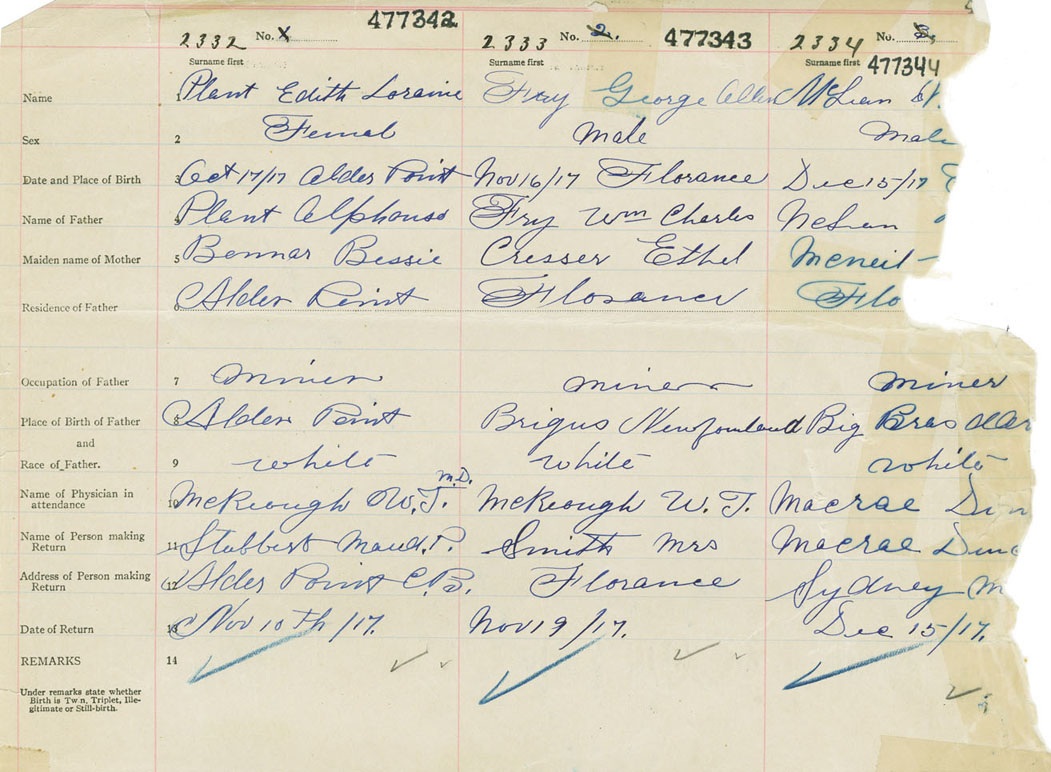 477342
2332 No. X 2333 No. 2. 477343 2334 No.
Surname first Surname first Surname first 477344
Name 1 Plant Edith Loraine Fry George Allen McLean
Sex 2 Femal male male
Date and Place of Birth 3 Oct 17/17 Alder Point Nov 16/17 Florance Dec 15/17
Name of Father 4 Plant Alphonse Fry Wm Charles
Maiden name of Mother 5 Bonnar Bessie Cresser Ethel Mcneil
Residence of Father 6 Alder Point Florance Flo
Occupation of Father 7 miner miner miner
Place of Birth of Father 8 Alder Point Brigus Newfomland Big Bras dAr
and
Race of Father. 9 white white white
M.D.
Name of Physician in
attendance 10 McKeough W. J. McKeough W. J. Macrae
Name of Person making
Return 11 Stubbert Maud. P. Smith Mrs Macrae Dunc
Address of Person making
Return 12 Alder Point C.B. Florance Sydney M
Date of Return 13 Nov 10th/17. Nov 19/17. Dec 15/17.
REMARKS 14
Under remarks state whether
Birth is Twin, Triplet, Ille-
gitimate or Still-birth.